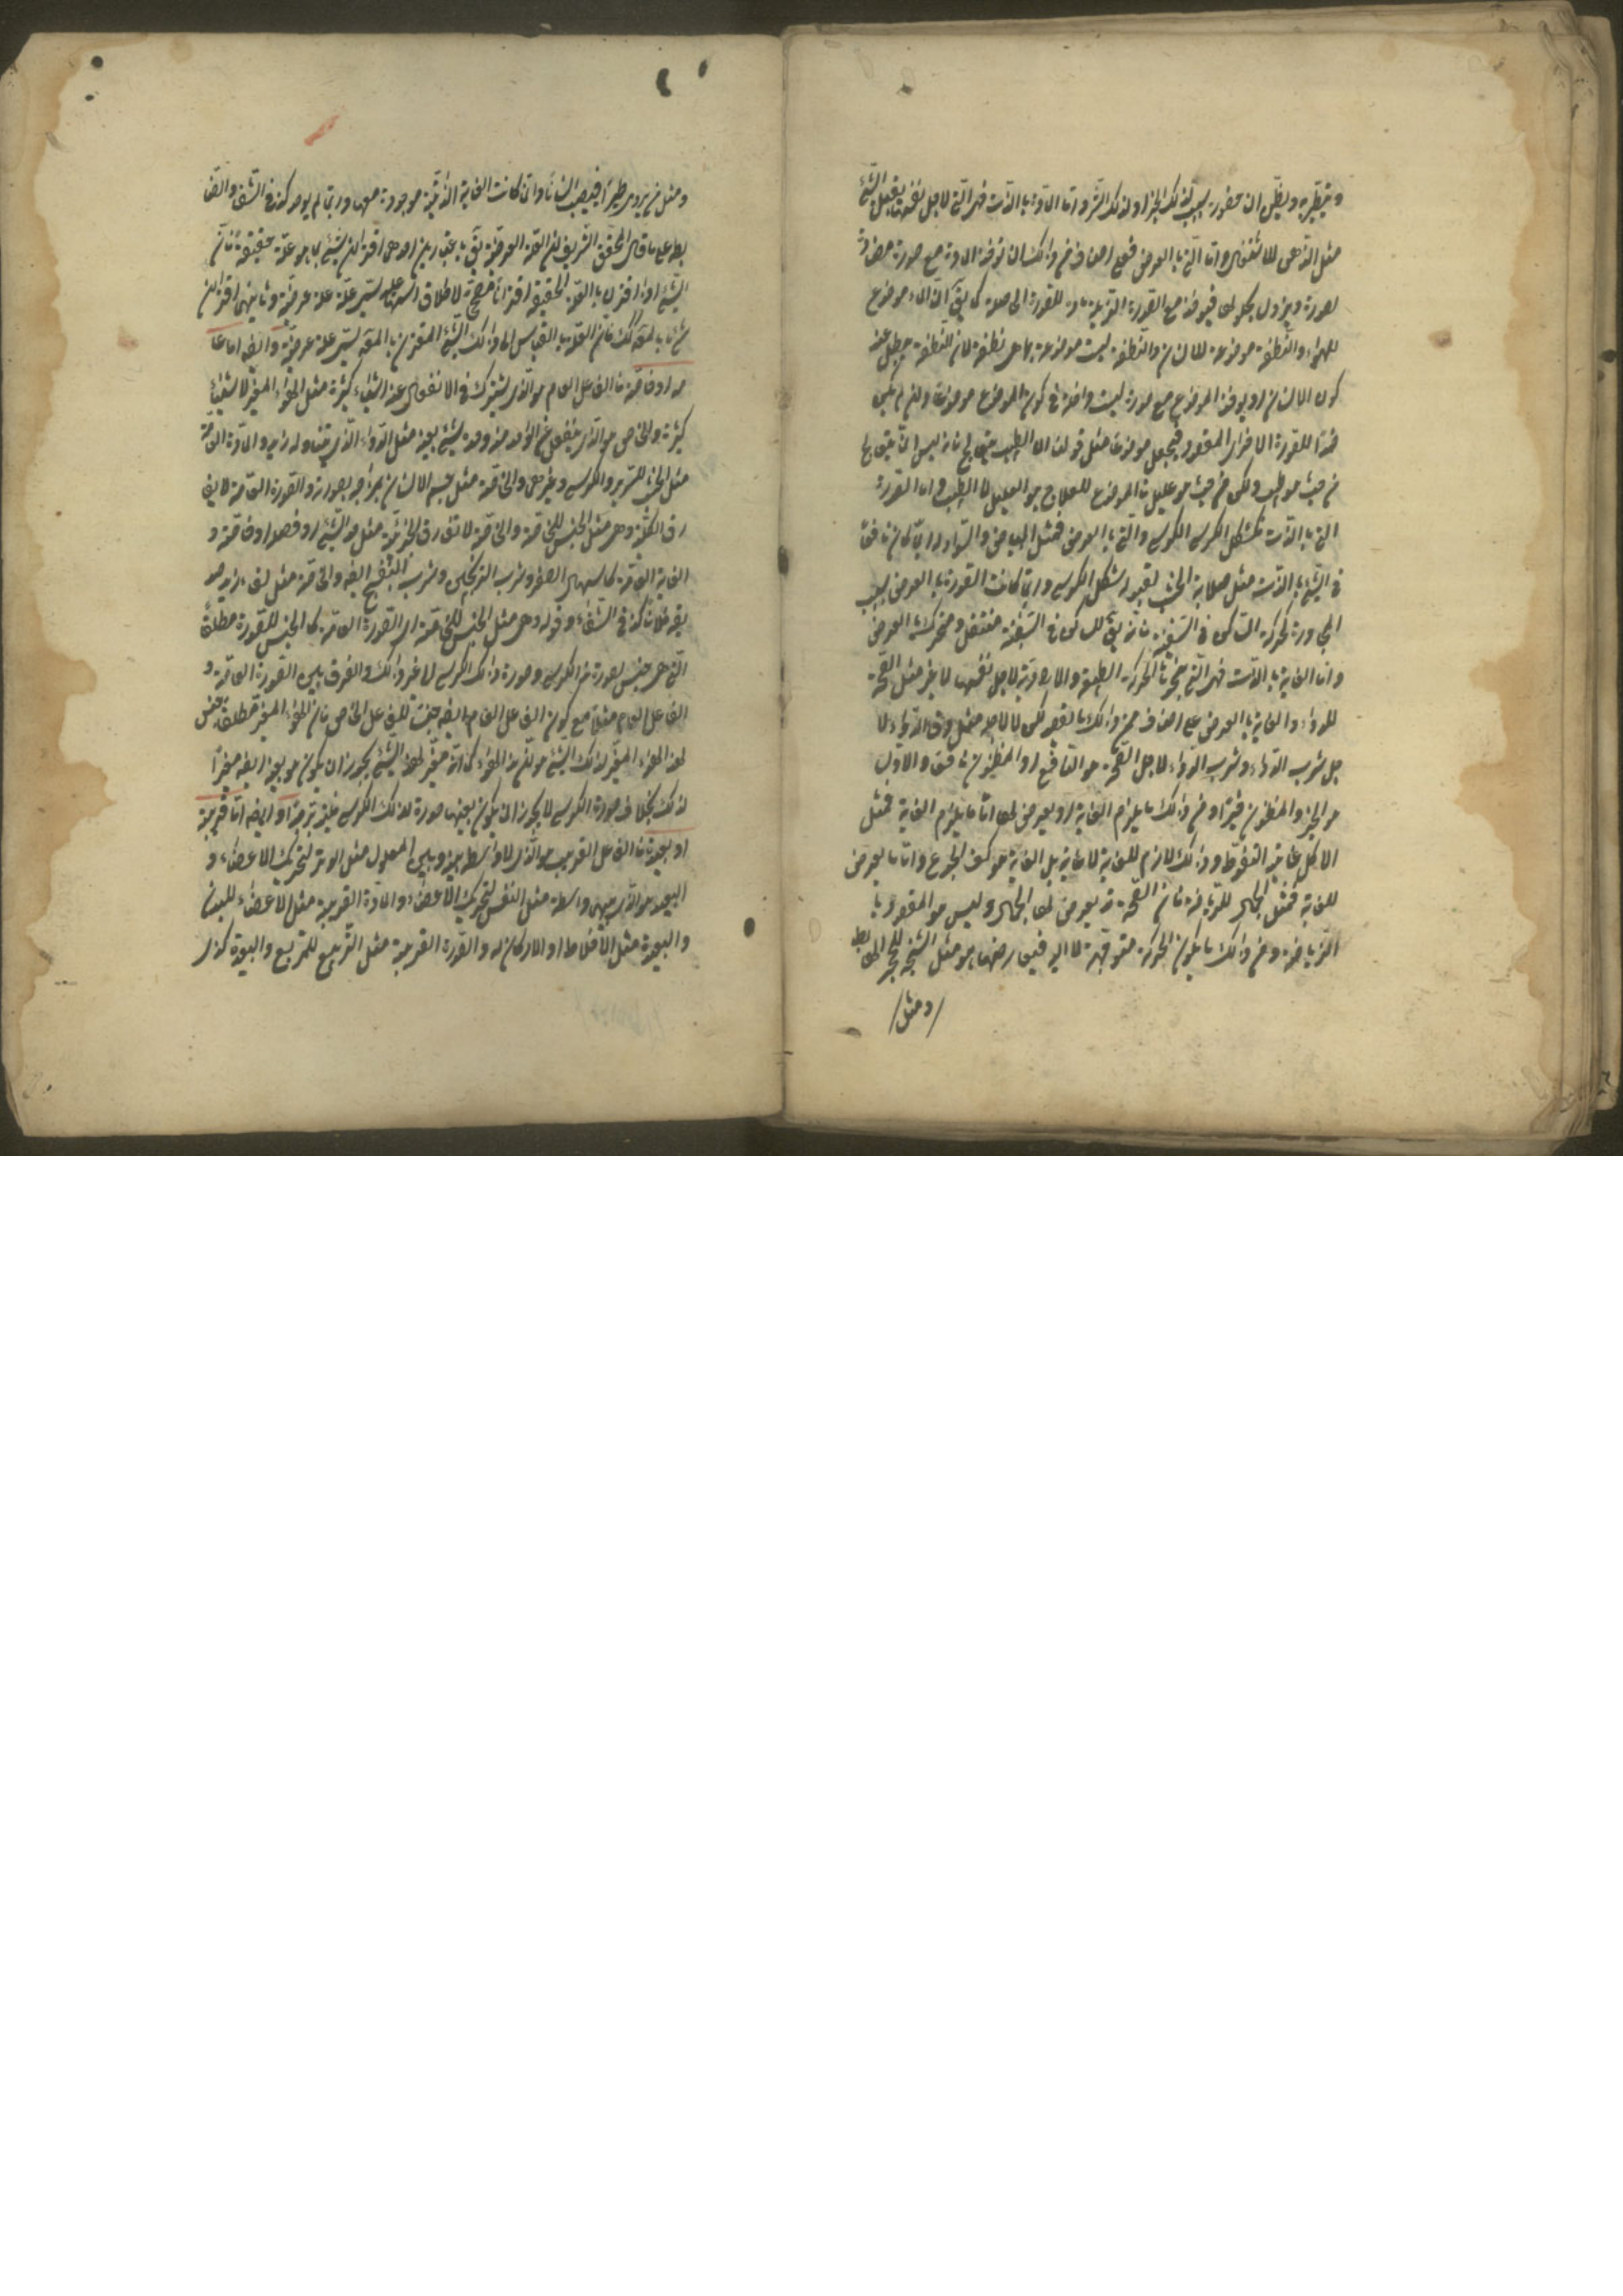 ويتطيّر به ويظنّ ان حضوره سبب لذلك الخير او لذلك الشر واما المادة بالذات فهى التى لاجل نفسها يقبل الشئ
مثل الدهن للاشتعال واما التى بالعرض فعلى اصناف من ذلك ان توخذ المادة مع صورة مضادة
لصورة ويزول بحلولها فيوخذ مع الصورة الزايلة مادة للصورة الحاصلة كما يقال ان الماء موضوع
للهواء والنطفة موضوعة للانسان والنطفة ليست موضوعة بما هى نطفة لان النطفة يبطل عند
كون الانسان او يوخذ الموضوع مع صورة ليست داخلة فى كون الموضوع موضوعا وان لم يكن
ضدا للصورة الاخرى المقصودة فيجعل موضوعا مثل قولنا ان الطبيب يتعالج فانه ليس انما يتعالج
من حيث هو طبيب ولكن من حيث هو عليل فالموضوع للعلاج هو العليل لا الطبيب واما الصورة
التى بالذات كشكل الكرسى للكرسى والتى بالعرض فمثل البياض والسواد له وربما كان نافعا
فى الشئ بالذات مثل صلابة الخشب لقبول شكل الكرسى وربما كانت الصورة بالعرض بسبب
المجاورة كحركة الساكن فى السفينة فانه يقال للساكن فى السفينة منتقل ومتحرك بالعرض
واما الغاية بالذات فهى التى ينحوها الحركة الطبيعية والارادية لاجل نفسها لا غير مثل الصحة
للدواء والغاية بالعرض على اصناف فمن ذلك ما يقصد لكن لا لاجله مثل دق الدواء لا
جل شرب الدواء وشرب الدواء لاجل الصحة هو النافع او المظنون نافعا والاول
هو الخير والمظنون خيرا ومن ذلك ما يلزم الغاية او يعرض لها اما ما يلزم الغاية فمثل
الاكل غايته التغوط وذلك لازم للغاية لا غاية بل الغاية هو كف الجوع واما ما يعرض
للغاية فمثل الجمال للرياضة فان الصحة قد يعرض لها الجمال وليس هو المقصود با
لرياضة ومن ذلك ما يكون الحركة متوجهة لا اليه فيعارضها هو مثل الشجة للحجر الهابط
ومثل
ومثل من يرمى طيرا فيصيب انسانا وان كانت الغاية الذاتية موجودة معها وربما لم يوجد كذا فى الشفاء والضا
بط على ما قال المحقق الشريف ان العلة العرضية يقال باعتبارين احدهما اقتران شئ بما هو علة حقيقة فان
الشئ اذا اقترن بالعلة الحقيقية اقترانا مصححا لاطلاق اسمها عليه تسمى علة عرضية وثانيهما اقتران
شئ ما بالمعلول كذلك فان العلة بالقياس الى ذلك الشئ المقترن بالمعلول تسمى علة عرضية وايضا اما عا
مة او خاصة فالفاعل العام هو الذى يشترك فى الانفعال عنه اشياء كثيرة مثل الهواء المغير لاشياء
كثيرة والخاص هو الذى ينفعل عن الواحد منه وحده شئ بعينه مثل الدواء الذى يتناوله زيد والمادة العامة
مثل الخشب للسرير والكرسى وغيرهما والخاصة مثل جسم الانسان بمزاجه لصورته والصورة العامة لا يفا
رق الكلية وهى مثل الجنس للخاصة والخاصة لا تفارق الجزئية مثل حد الشئ او فصله او خاصته و
الغاية العامة كاسهال الصفراء وشرب الترنجبين وشرب البنفسج ايضا والخاصة مثل لقاء زيد صد
يقه فلانا كذا فى الشفاء وقوله وهى مثل الجنس للخاصة اى الصورة العامة كالجنس للصورة مطلقا
التى هى جنس لصورة من الكرسى وصورة ذلك الكرسى الى غير ذلك والفرق بين الصورة العامة و
الفاعل العام مثلا مع كون الفاعل العام ايضا جنسا للفاعل الخاص فان للهواء المغير مطلقا جنس
لهذا الهواء المغير لذلك الشئ هو ان هذا الهواء كما انه مغير لهذا الشئ يجوز ان يكون هو بعينه ايضا مغيرا
لذلك بخلاف صورة الكرسى لا يجوز ان يكون بعينها صورة لذلك الكرسى فليتدبر وايضا اما قريبة
او بعيدة فالفاعل القريب هو الذى لا واسطة بينه وبين المعلول مثل الوتر لتحريك الاعضاء و
البعيد هو الذى بينهما واسطة مثل النفس لتحريك الاعضاء والمادة القريبة مثل الاعضاء للبدن
والبعيدة مثل الاخلاط او الاركان له والصورة القريبة مثل التربيع للمربع والبعيدة كذى